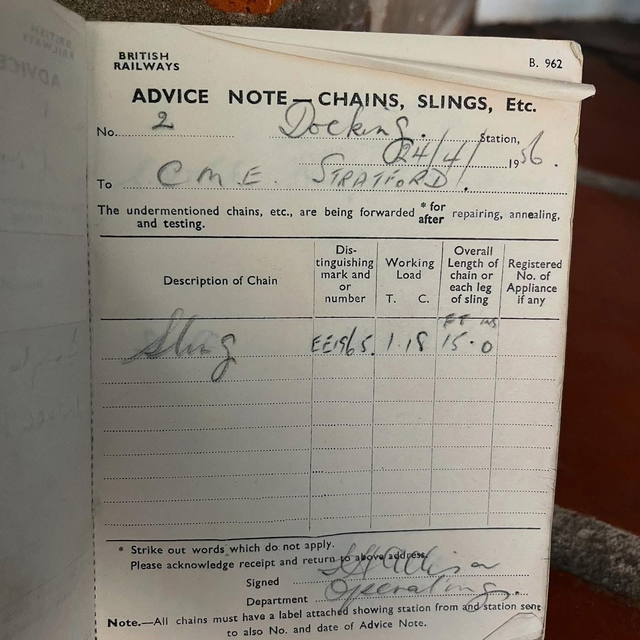 BRITISH
RAILWAYS
B. 962
ADVICE NOTE—CHAINS, SLINGS, Etc.
No. 2 Docking. Station,
24/4/ 1956.
To C M E. STRATFORD.
The undermentioned chains, etc., are being forwarded * for after repairing, annealing,
and testing.
Description of Chain
Distinguishing mark and or number
Working Load T. C.
Overall Length of chain or each leg of sling
Registered No. of Appliance if any
FT INS
Sling EE1965. 1.18 15.0
* Strike out words which do not apply.
Please acknowledge receipt and return to above address.
Signed
Department Operating.
Note.—All chains must have a label attached showing station from and station sent
to also No. and date of Advice Note.